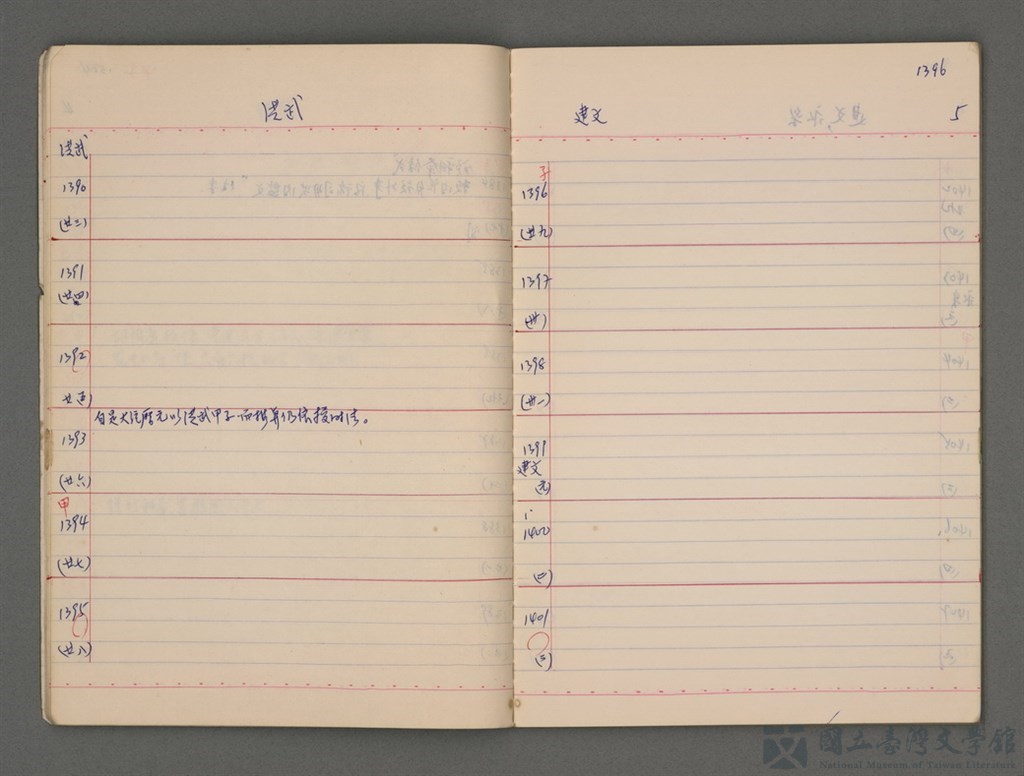 洪武
洪武
1390
(廿三)
1391
(廿四)
1392
廿五
自是大統曆元以洪武甲子而推算仍依授时法。
1393
(廿六)
甲
1394
(廿七)
1395
(廿八)
1396
建文
5
子
1396
(廿九)
1397
(卅)
1398
(卅一)
1399
建文
元
1400
(二)
1401
(三)
國立臺灣文學館
National Museum of Taiwan Literature